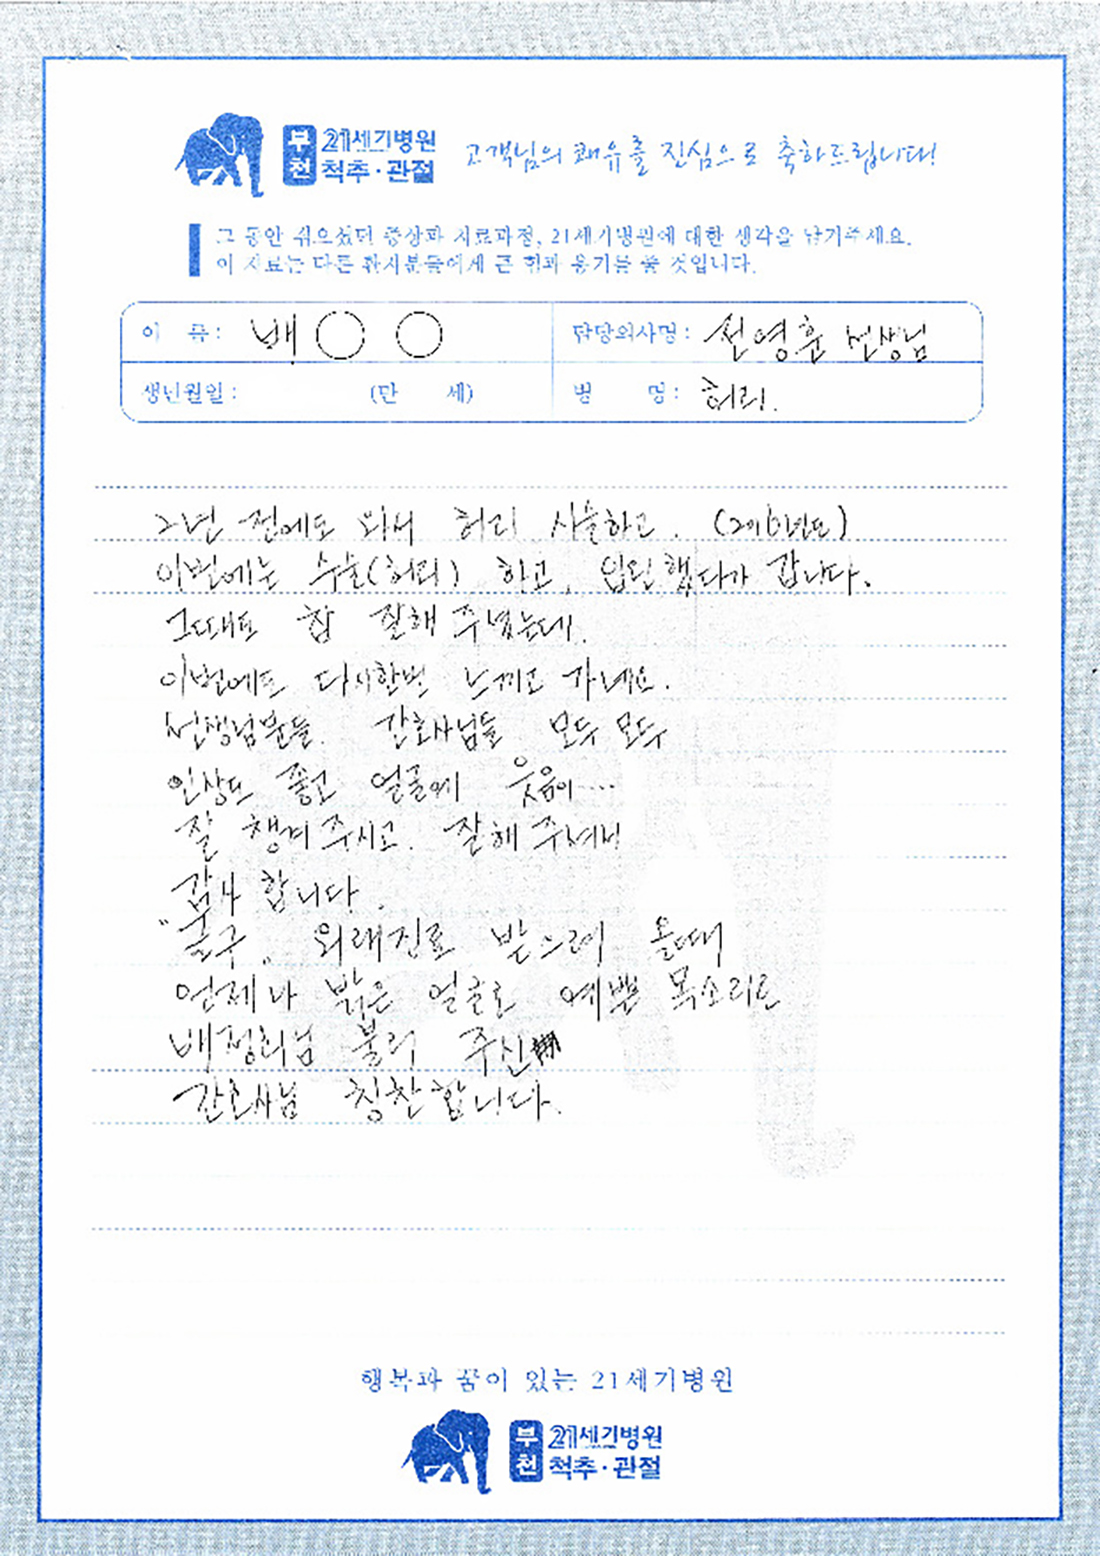 부천 21세기병원 척추·관절 고객님의 쾌유를 진심으로 축하드립니다!
그 동안 겪으셨던 증상과 치료과정, 21세기병원에 대한 생각을 남기주세요.
이 자료는 다른 환자분들에게 큰 힘과 용기를 줄 것입니다.
이 름: 배○○ 담당의사명: 전영훈 선생님
생년월일: (만 세) 병 명: 허리.
2년 전에도 와서 허리 시술하고. (2016년도)
이번에는 수술(허리) 하고, 입원했다가 갑니다.
그때도 참 잘해주셨는데.
이번에도 다시한번 느끼고 가네요.
선생님분들 간호사님들 모두모두
인상도 좋고 얼굴에 웃음이...
잘 챙겨주시고. 잘해주셔서
감사합니다.
"줄구" 외래진료 받으러 올때
언제나 밝은 얼굴로 예쁜 목소리로
배정희님 불러 주신
간호사님 칭찬합니다.
행복과 꿈이 있는 21세기병원
부천 21세기병원 척추·관절